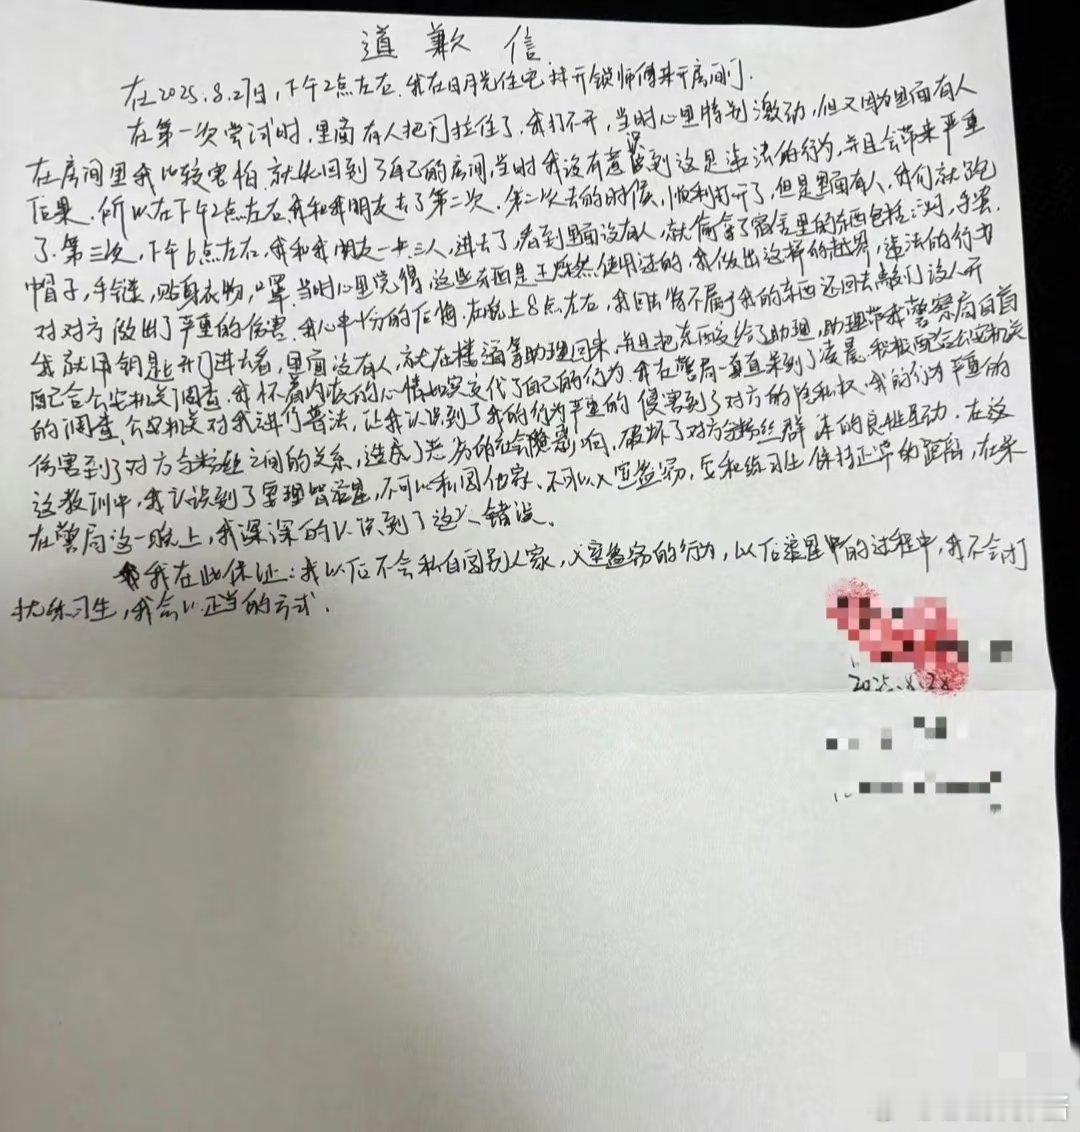 道歉信
在2025.8.27日,下午2点左右.我在日月光住宅找开锁师傅来开房间门.
在第一次尝试时.里面有人把门拉住了.我打不开,当时心里特别激动,但又因为里面有人
在房间里我比较害怕.就先回到了自己的房间,当时我没有意识到这是违法的行为.并且会带来严重
后果.所以在下午2点左右,我和我朋友去了第二次.第二次去的时候,顺利打开了,但是里面有人,我们就跑
了.第三次,下午6点左右.我和我朋友一共三人,进去了,看到里面没有人,就偷拿了宿舍里的东西包括:
帽子,手链,贴身衣物,口罩.当时心里觉得,这些东西是王烁然使用过的.我做出这样的越界,违法的行为
对对方做出了严重的伤害.我心中十分的后悔.在晚上8点左右,我回去将不属于我的东西还回去敲门没人开
我就用钥匙开门进去看,里面没有人,就在楼道等助理回来,并且把东西交给了助理,助理带我警察局自首
配合公安机关调查.我怀着内疚的心情如实交代了自己的行为.我在警局一直呆到了凌晨.积极配合公安机关
的调查.公安机关对我进行普法,让我认识到了我的行为严重的侵害到了对方的隐私权.我的行为严重的
伤害到了对方与粉丝之间的关系,造成了恶劣的社会影响,破坏了对方与粉丝群体的良性互动.在这
这教训中,我认识到了要理智追星,不可以私闯他家.不可以入室盗窃,要和练习生保持正常的距离,在呆
在警局这一晚上,我深深的认识到了这个错误.
我在此保证:我以后不会私自闯别人家,入室盗窃的行为,以后追星中的过程中,我不会打
扰练习生,我会以正当的方式.
2025.8.28